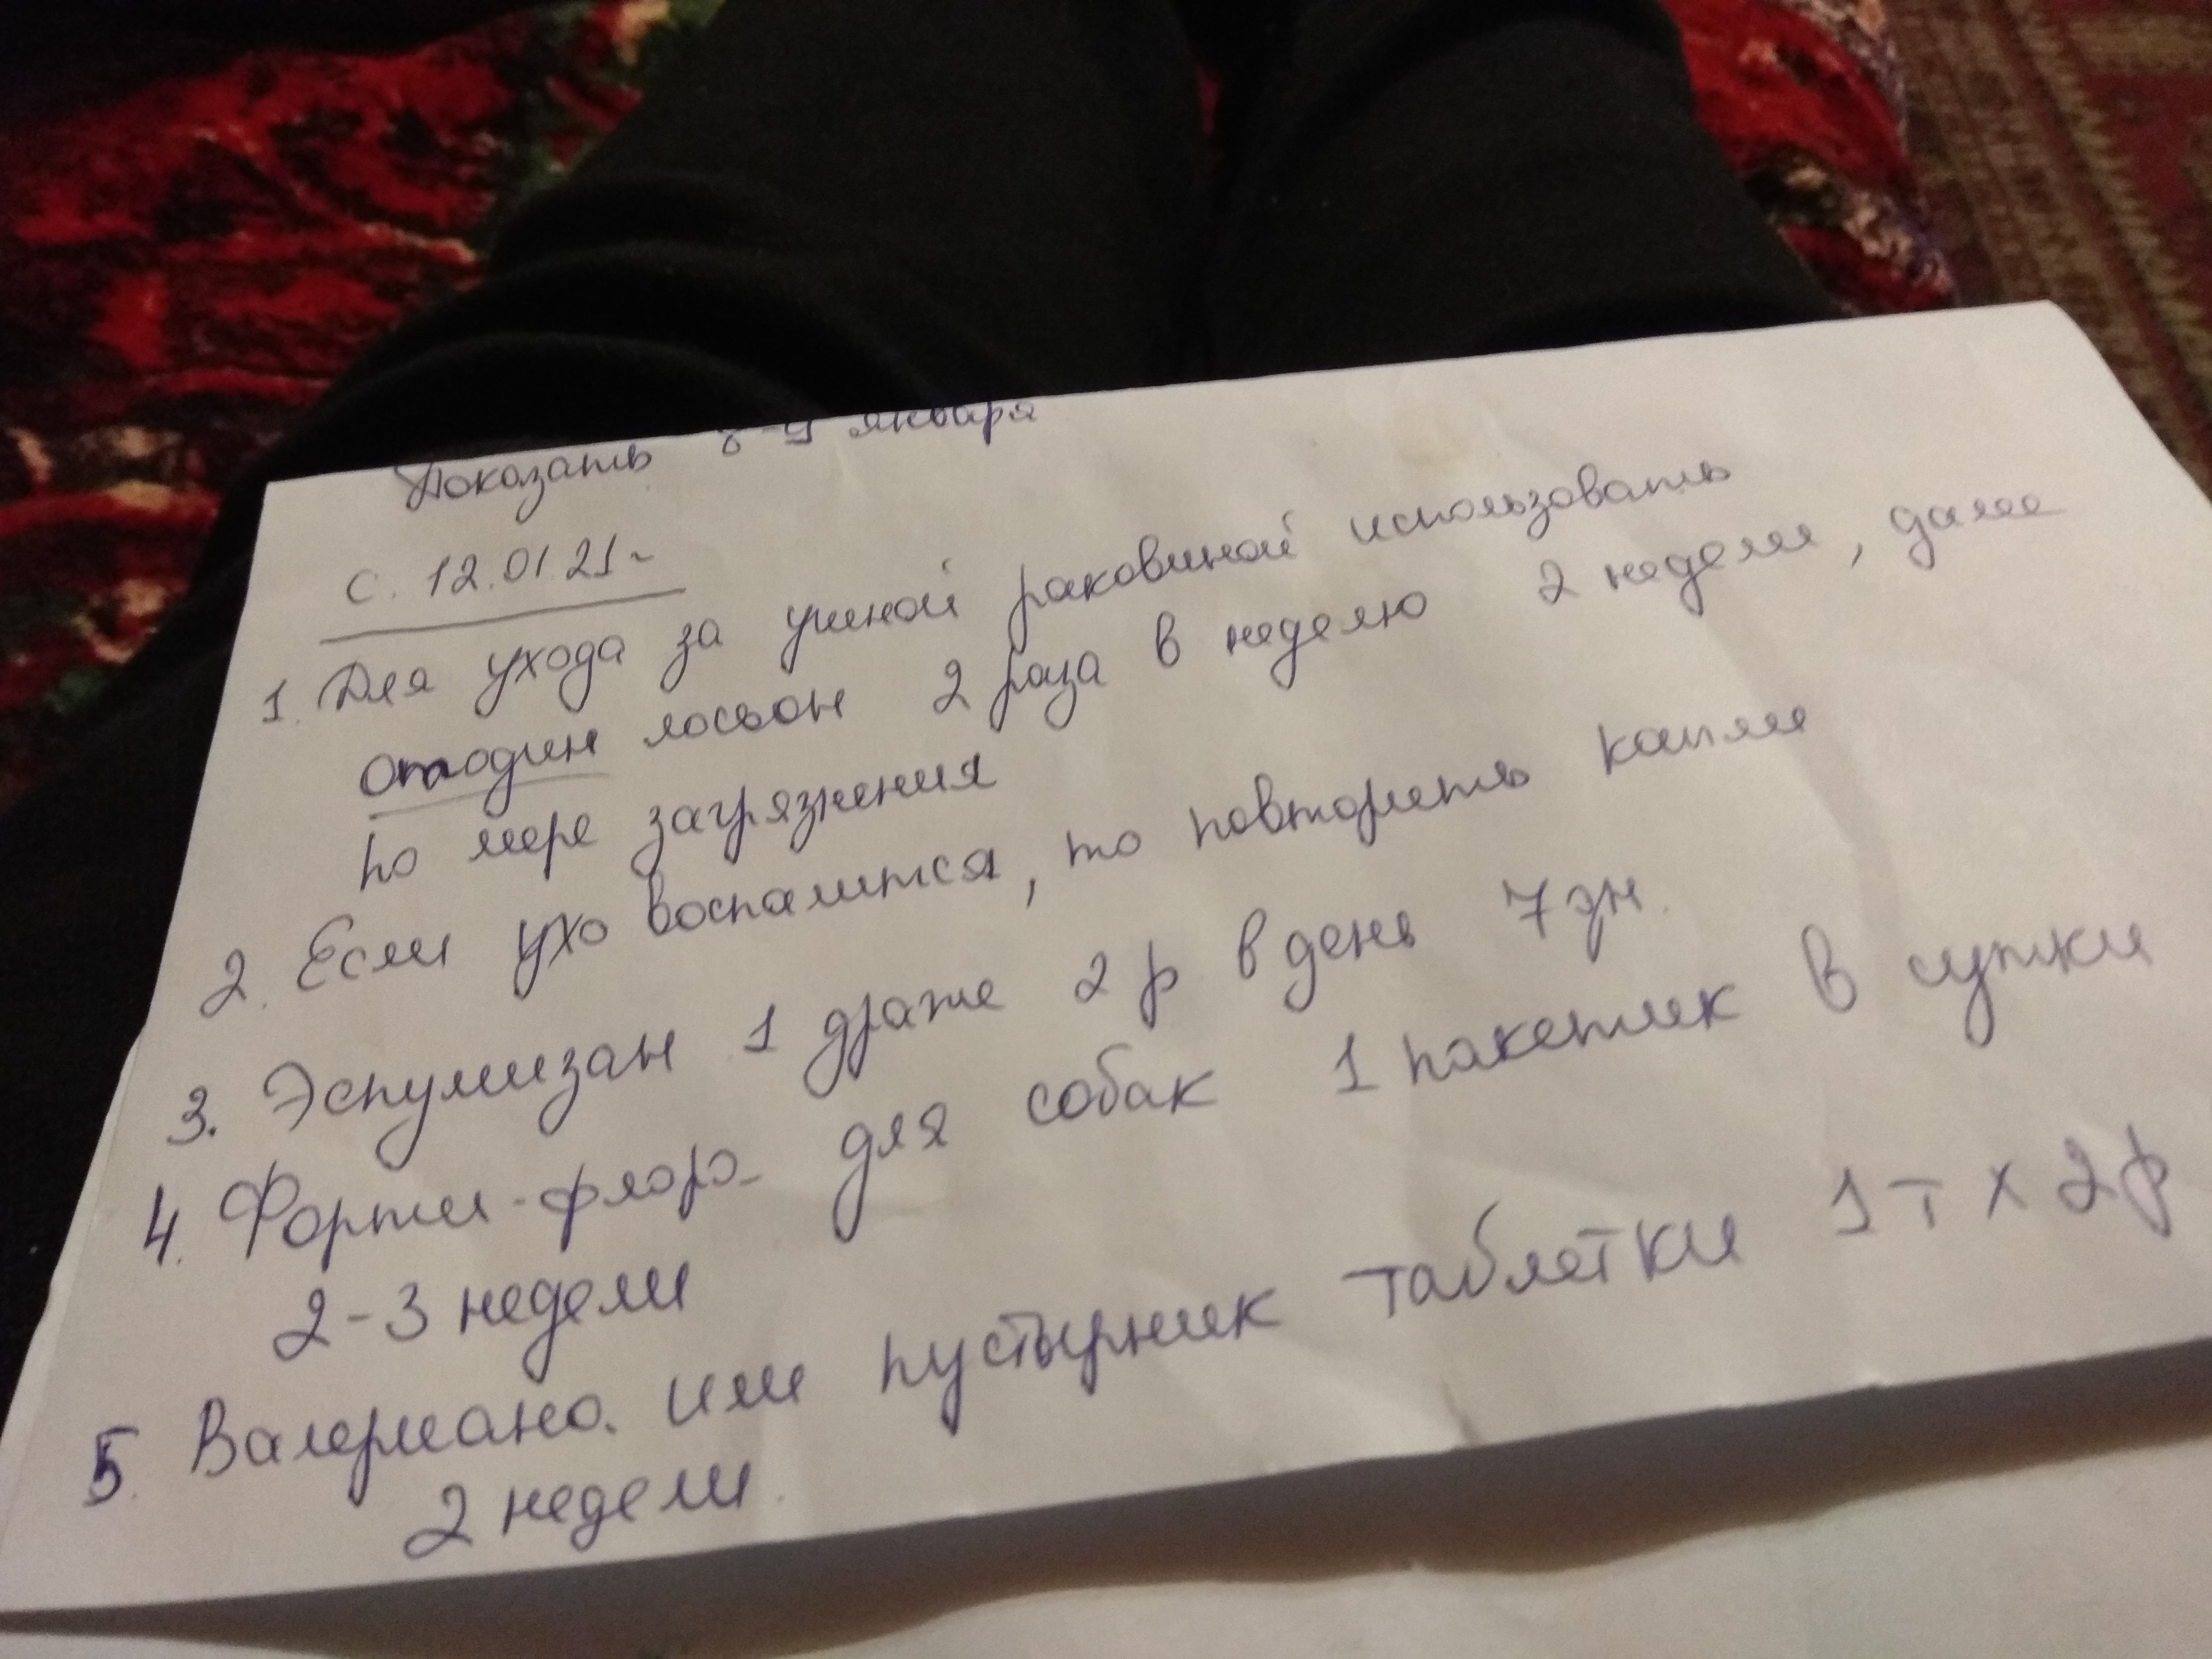 Показать 8-9 января
с. 12.01.21г
1. Для ухода за ушной раковиной использовать
Отодин лосьон 2 раза в неделю 2 недели, далее
по мере загрязнения
2. Если ухо воспалится, то повторить капли
3. Эспумизан 1 драже 2 р в день 7 дн.
4. Форти-флора для собак 1 пакетик в сутки
2-3 недели
5. Валериана. или пустырник таблетки 1 т х 2 р
2 недели.